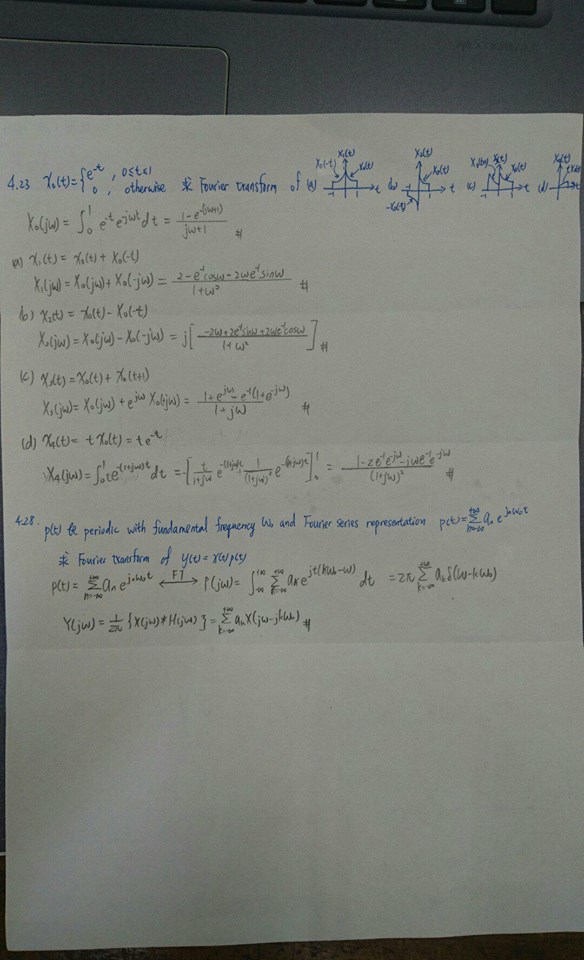 4.23 x₀(t)={e⁻ᵗ, 0≤t≤1 0, otherwise 求 Fourier transform of (a) x₁(t) x₀(-t) x₀(t) -1 1 t (b) x₂(t) x₀(t) -x₀(-t) -1 1 t (c) x₃(t) x₀(t) -1 1 t (d) x₄(t) t
X₀(jω) = ∫₀¹ e⁻ᵗ e^{-jωt} dt = (1-e^{-(jω+1)})/(jω+1) #
(a) x₁(t) = x₀(t) + x₀(-t)
X₁(jω) = X₀(jω) + X₀(-jω) = (2-2e⁻¹cosω-2ωe⁻¹sinω)/(1+ω²) #
(b) x₂(t) = x₀(t) - x₀(-t)
X₂(jω) = X₀(jω) - X₀(-jω) = j[(-2ω+2e⁻¹sinω+2ωe⁻¹cosω)/(1+ω²)] #
(c) x₃(t) = x₀(t) + x₀(t+1)
X₃(jω) = X₀(jω) + e^{jω} X₀(jω) = (1+e^{jω}-e⁻¹(1+e^{-jω}))/(1+jω) #
(d) x₄(t) = t x₀(t) = t e⁻ᵗ
X₄(jω) = ∫₀¹ t e^{-(1+jω)t} dt = -[t/(1+jω) e^{-(1+jω)t} 1/(1+jω)² e^{-(1+jω)t}]₀¹ = (1-2e⁻¹e^{-jω}-jωe⁻¹e^{-jω})/(1+jω)² #
4.28. p(t) be periodic with fundamental frequency ω₀ and Fourier series representation p(t)=∑_{n=-∞}^{+∞} aₙ e^{jnω₀t}
求 Fourier transform of y(t)=x(t)p(t)
p(t) = ∑_{n=-∞}^{+∞} aₙ e^{jnω₀t} ⟷FT P(jω) = ∫_{-∞}^{+∞} ∑_{k=-∞}^{+∞} aₖ e^{jt(kω₀-ω)} dt = 2π ∑_{k=-∞}^{+∞} aₖ δ(ω-kω₀)
Y(jω) = 1/2π {X(jω)*H(jω)} = ∑_{k=-∞}^{+∞} aₖ X(jω-jkω₀) #